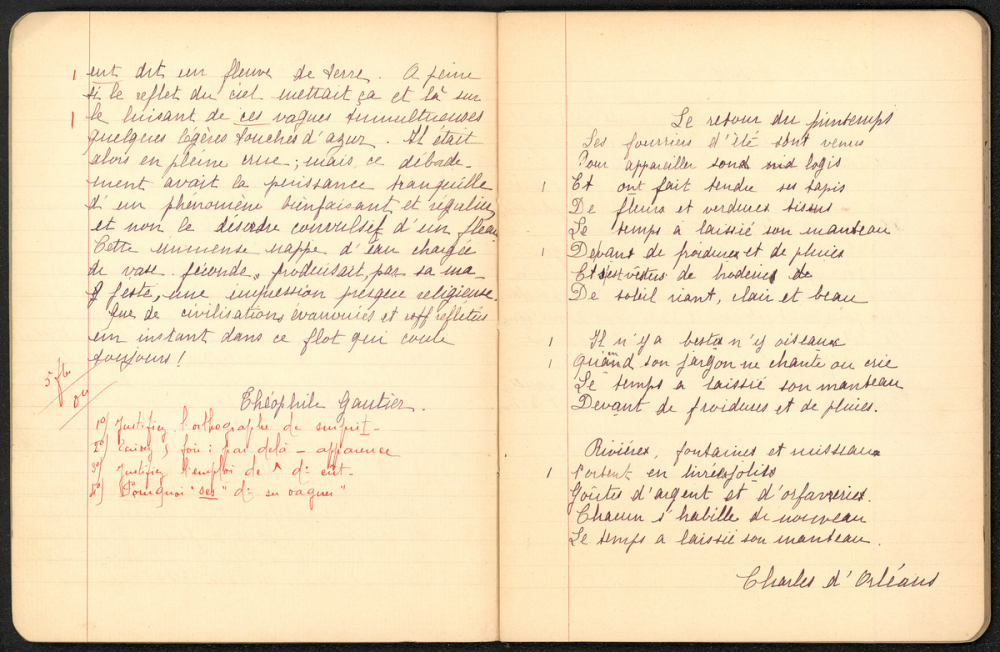 eut dit un fleuve de terre. A peine
si le reflet du ciel mettait ça et là sur
le luisant de ces vagues tumultueuses
quelques légères touches d'azur. Il était
alors en pleine crue ; mais ce débade-
ment avait la puissance tranquille
d'un phénomène bienfaisant et régulier
et non le désordre convulsif d'un fléau
Cette immense nappe d'eau chargée
de vase féconde, produisait par sa ma-
jesté, une impression presque religieuse.
Que de civilisations évanouies et reflétées
un instant dans ce flot qui coule
toujours !
5 fts
04
Théophile Gautier.
1°) Justifiez l'orthographe de
2°) Ecivez 5 fois : par delà - apparence
3°) Justifiez l'emploi de ^ d: eût.
4°) Pourquoi "ses" d: ses vagues"
Le retour du printemps
Les fourriers d'été sont venus
Pour appareiller son logis
Et ont fait tendre ses tapis
De fleurs et verdures tissus
Le temps a laissié son manteau
Devant de froidures et de pluies
Et s'est vêtus de broderies de
De soleil riant, clair et beau
Il n'y a bestes n'y oiseaux
Quand son jargon ne chante ou crie
Le temps a laissié son manteau
Devant de froidures et de pluies.
Rivières, fontaines et ruisseaux
Portent en livrée jolies
Goûtes d'argent et d'orfavreries.
Chacun s'habille de nouveau
Le temps a laissié son manteau.
Charles d'Orléans